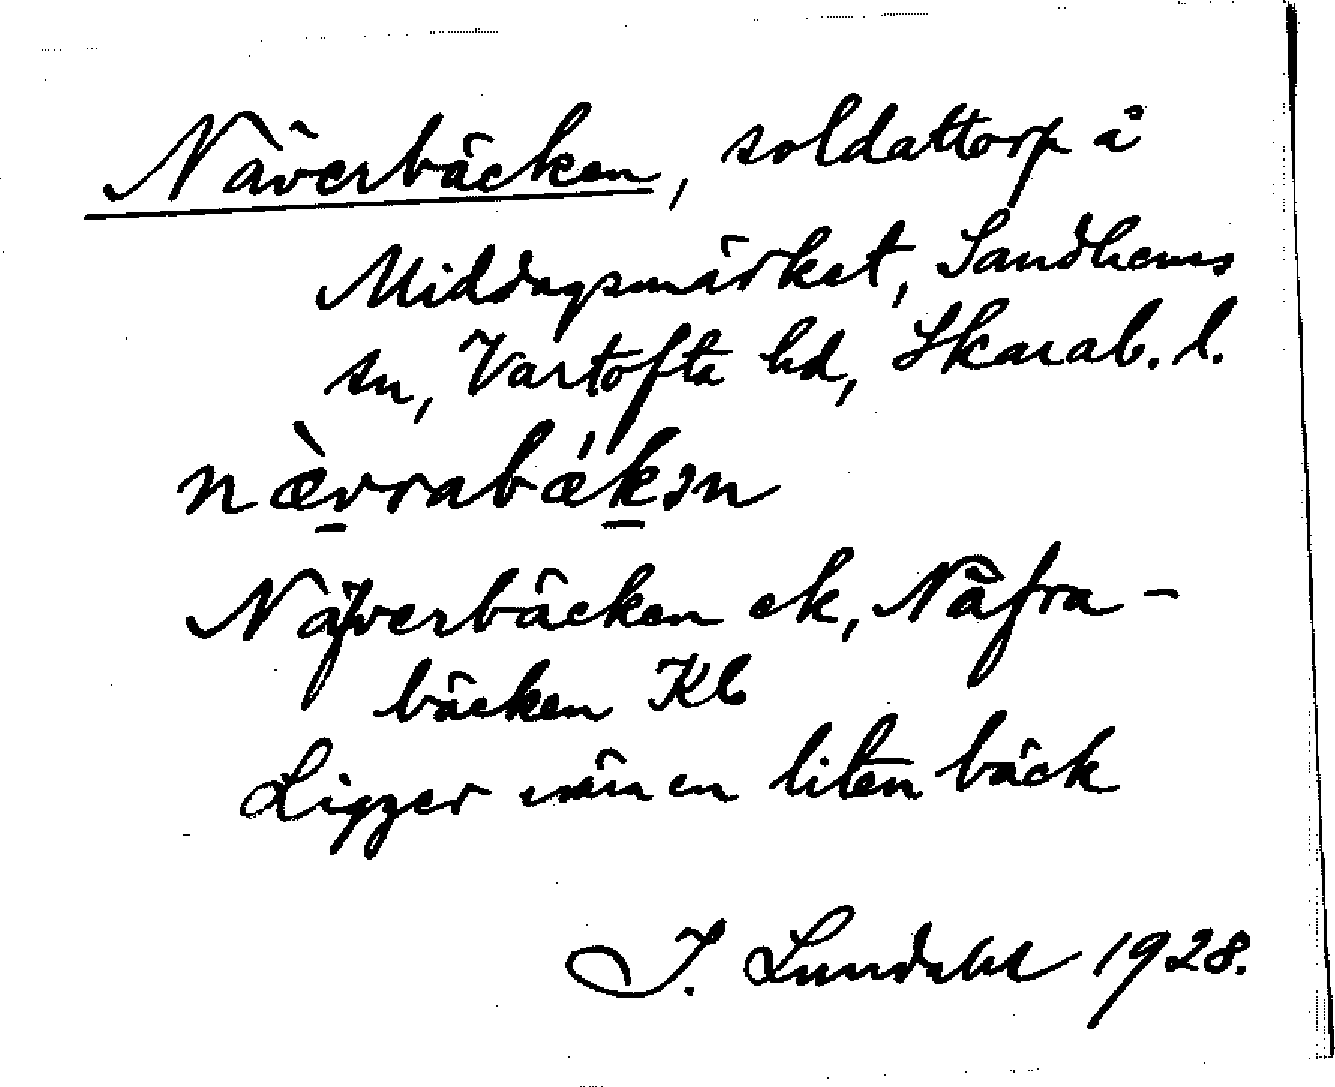 Näverbäcken, soldattorp å
Middagsmärket, Sandhems
sn, Vartofta hd, Skarab. l.
næ̀vrabǽkən
Näfverbäcken ek, Näfra-
bäcken Kb
Ligger intill en liten bäck
I. Lundahl 1928.